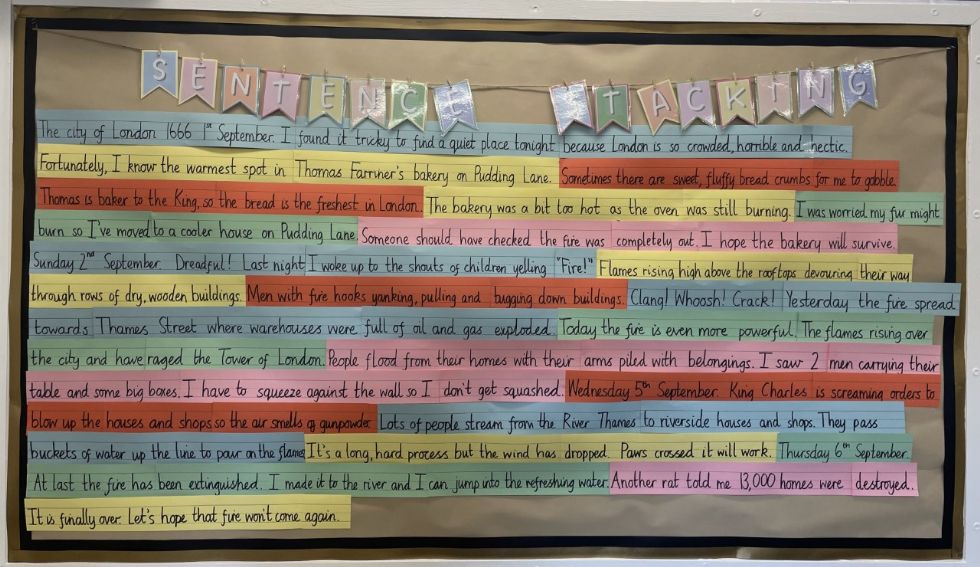 SENTENCE STACKING
The city of London 1666 1st September. I found it tricky to find a quiet place tonight because London is so crowded, horrible and hectic.
Fortunately, I know the warmest spot in Thomas Farriner's bakery on Pudding Lane. Sometimes there are sweet, fluffy bread crumbs for me to gobble.
Thomas is baker to the King, so the bread is the freshest in London. The bakery was a bit too hot as the oven was still burning. I was worried my fur might
burn so I've moved to a cooler house on Pudding Lane. Someone should have checked the fire was completely out. I hope the bakery will survive.
Sunday 2nd September. Dreadful! Last night I woke up to the shouts of children yelling "Fire!" Flames rising high above the rooftops devouring their way
through rows of dry, wooden buildings. Men with fire hooks yanking, pulling and tugging down buildings. Clang! Whoosh! Crack! Yesterday the fire spread
towards Thames Street where warehouses were full of oil and gas exploded. Today the fire is even more powerful. The flames rising over
the city and have raged the Tower of London. People flood from their homes with their arms piled with belongings. I saw 2 men carrying their
table and some big boxes. I have to squeeze against the wall so I don't get squashed. Wednesday 5th September. King Charles is screaming orders to
blow up the houses and shops so the air smells of gunpowder. Lots of people stream from the River Thames to riverside houses and shops. They pass
buckets of water up the line to pour on the flames. It's a long, hard process but the wind has dropped. Paws crossed it will work. Thursday 6th September.
At last the fire has been extinguished. I made it to the river and I can jump into the refreshing water. Another rat told me 13,000 homes were destroyed.
It is finally over. Let's hope that fire won't come again.